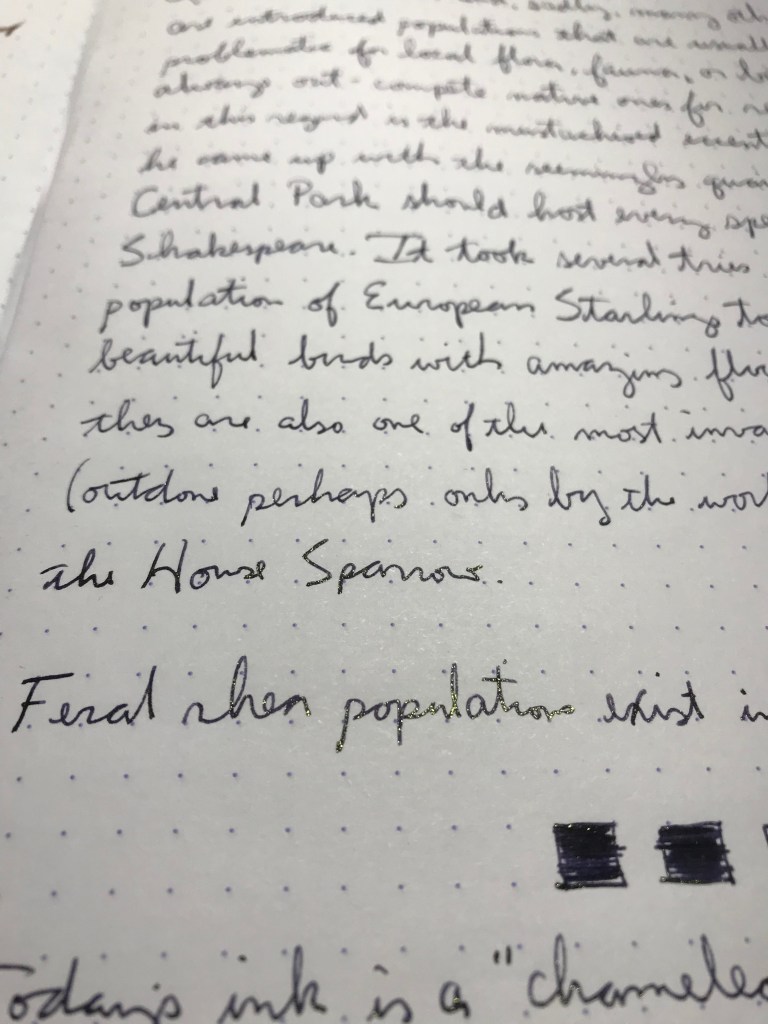 sadly, many
are introduced populations that are
problematic for local flora, fauna, or
always out-compete native ones for
in this regard is the mustachioed
he came up with the seemingly
Central Park should host every
Shakespeare. It took several tries
population of European Starling
beautiful birds with amazing
they are also one of the most
(outdone perhaps only by the
the House Sparrow.
Feral rhea populations exist
Today's ink is a "